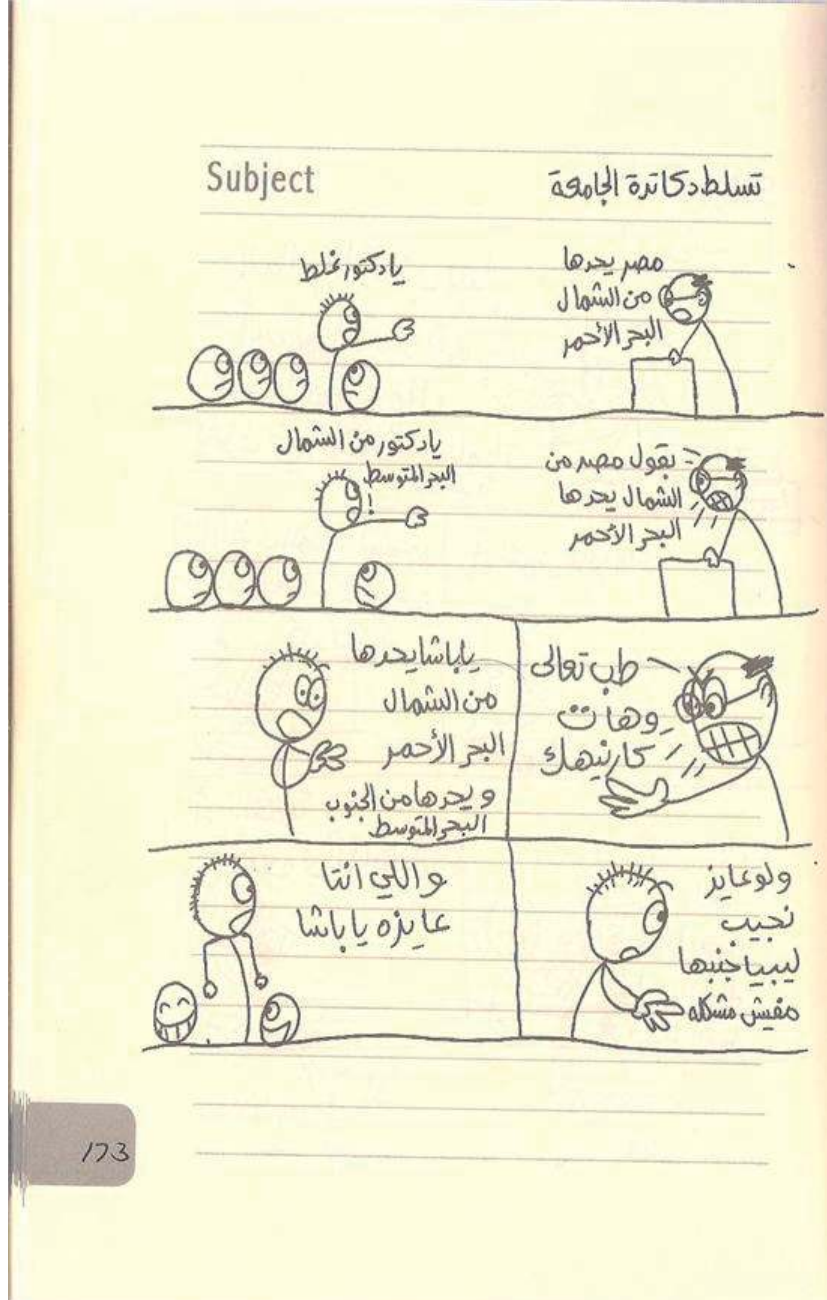 Subject
تسلط دكاترة الجامعة
مصر يحدها
من الشمال
البحر الأحمر
يا دكتور غلط
بقول مصر من
الشمال يحدها
البحر الأحمر
يا دكتور من الشمال
البحر المتوسط
!
طب تعالى
وهات
كارنيهك
يا باشا يحدها
من الشمال
البحر الأحمر
و يحدها من الجنوب
البحر المتوسط
ولو عايز
نجيب
ليبيا جنبها
مفيش مشكله
و اللي انتا
عايزه يا باشا
173